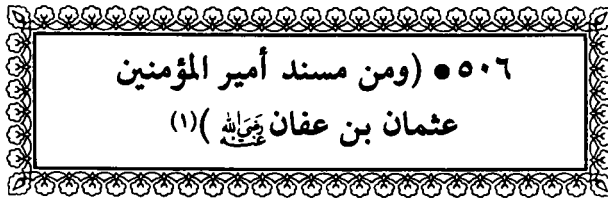 ٥٠٦ ● (ومن مسند أمير المؤمنين
عثمان بن عفان رضي الله عنه )(١)